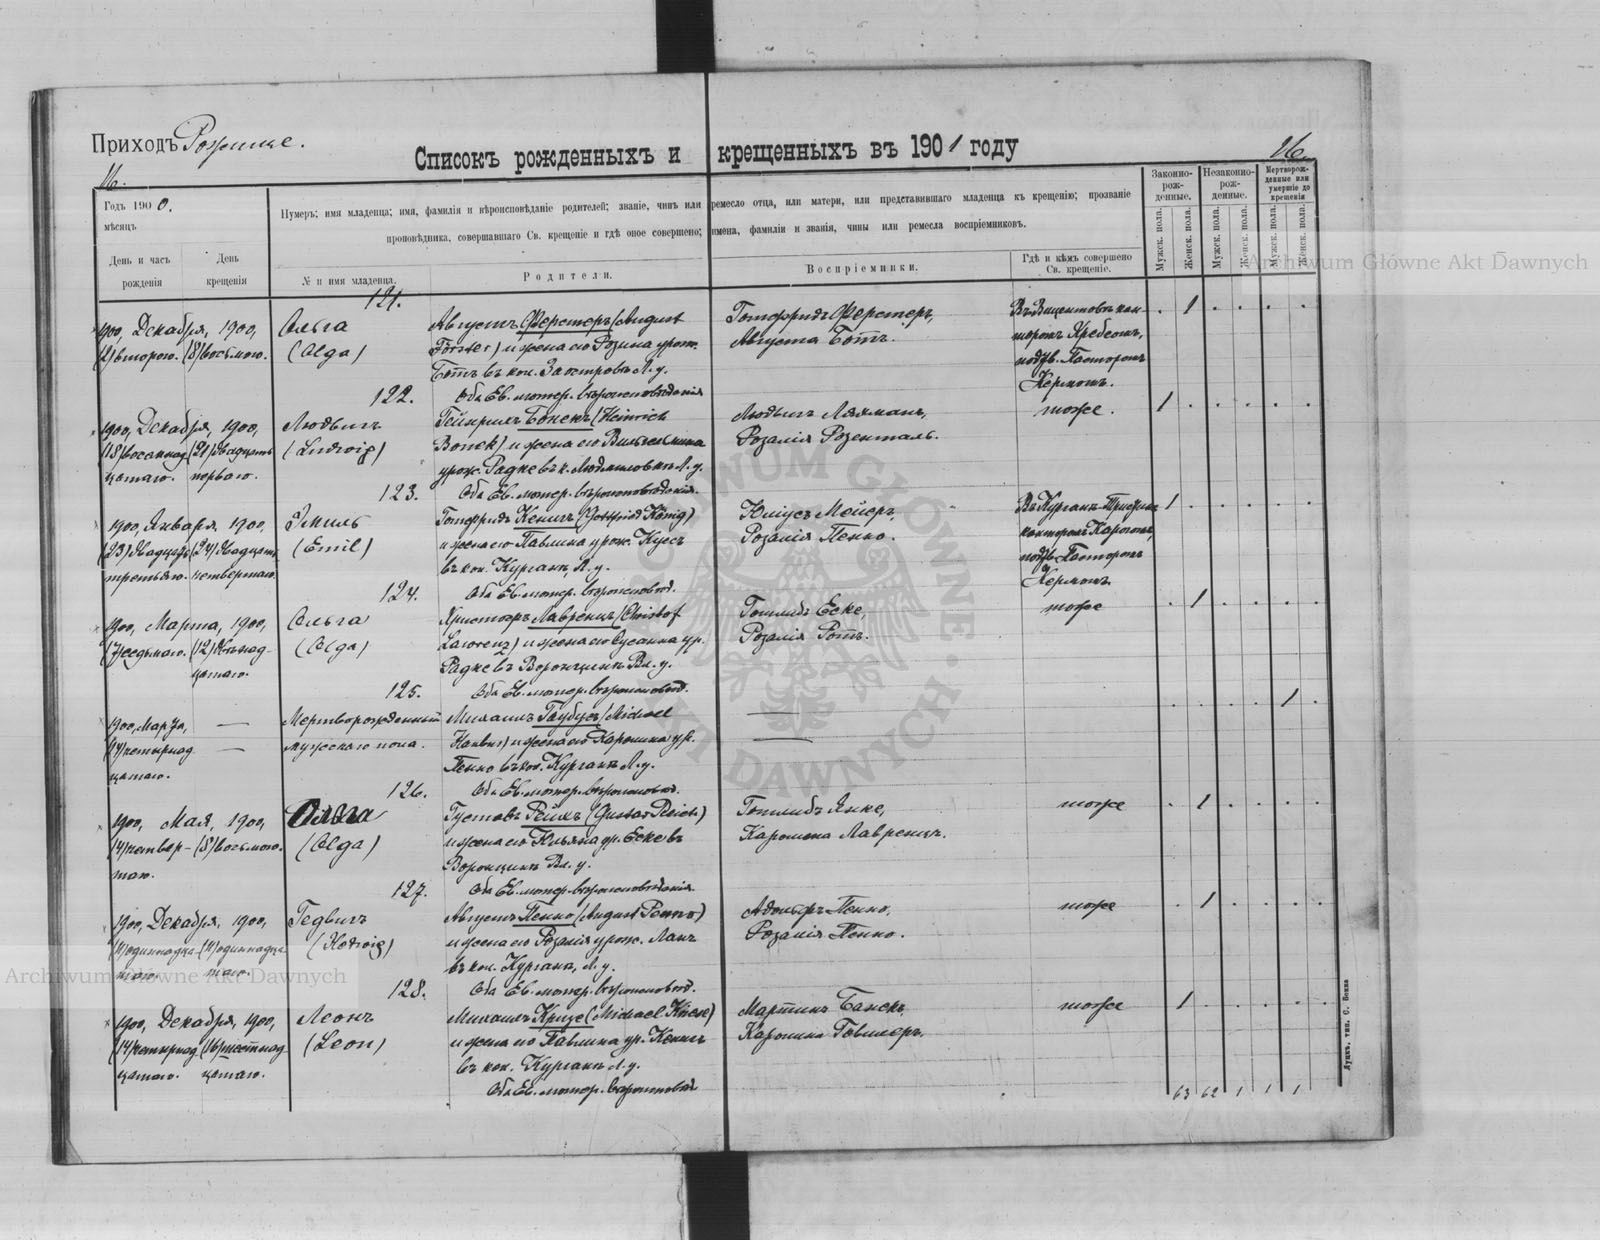 Приходъ Рожище.
Списокъ рожденныхъ и крещенныхъ въ 1901 году
16.
16.
Годъ 1900.
мѣсяцъ
День и часъ рожденія
День крещенія
Нумеръ; имя младенца; имя, фамилія и вѣроисповѣданіе родителей; званіе, чинъ или ремесло отца, или матери, или представившаго младенца къ крещенію; прозваніе
проповѣдника, совершавшаго Св. крещеніе и гдѣ оное совершено; имена, фамиліи и званія, чины или ремесла воспріемниковъ.
№ и имя младенца.
Родители.
Воспріемники.
Гдѣ и кѣмъ совершено Св. крещеніе.
Законно-рож-денные.
Незаконно-рож-денные.
Мертворож-денные или умершіе до крещенія
Мужск. пола.
Женск. пола.
Мужск. пола.
Женск. пола.
Мужск. пола.
Женск. пола.
121.
1900, Декабря, 1900,
(2) второго. (8) восьмого.
Ольга
(Olga)
Августъ Ферстеръ (August
Förster) и жена его Розина урож.
Ботъ въ кол. Заостровъ Л. у.
Оба Ев. лютер. вѣроисповѣданія
Готфридъ Ферстеръ,
Августа Ботъ.
подтв. Пасторомъ
Керномъ.
1
122.
1900, Декабря, 1900,
(18) восемнад (21) двадцать
цатаго. перваго.
Людвигъ
(Ludwig)
Гейнрихъ Бонекъ (Heinrich
Bonek) и жена его Вильгельмина
урож. Радке въ к. Людмиловкѣ Л. у.
Оба Ев. лютер. вѣроисповѣданія.
Людвигъ Ляхманъ,
Розалія Розенталь.
тоже.
1
123.
1900, Января, 1900,
(23) двадцать (24) двадцать
третьяго. четвертаго.
Эмиль
(Emil)
Готфридъ Кенигъ (Gottfried König)
и жена его Павлина урож. Кусъ
въ кол. Курганъ, Л. у.
Оба Ев. лютер. вѣроисповѣд.
Юліусъ Мейеръ,
Розалія Пенно.
подтв. Пасторомъ
Керномъ
1
124.
1900, Марта, 1900,
(7) седьмаго. (12) двѣнад-
цатаго.
Ольга
(Olga)
Христофъ Лавренцъ (Christof
Lawrenz) и жена его Сусанна ур.
Радке въ Воронцинъ Вл. у.
Оба Ев. лютер. вѣроисповѣд.
Готлибъ Еске,
Розалія Ротъ.
тоже
1
125.
1900, Марта, —
(14) четырнад —
цатаго.
Мертворожденный
мужскаго пола.
Михаилъ (Michael
и жена его Каролина ур.
Пенно въ кол. Курганъ Л. у.
Оба Ев. лютер. вѣроисповѣд.
1
126.
1900, Мая, 1900,
(4) четвер- (8) восьмого.
таго.
Ольга
(Olga)
Густавъ Рейхъ (Gustav Reich)
и жена его Юльяна ур. Еске въ
Воронцинъ Вл. у.
Оба Ев. лютер. вѣроисповѣданія
Готлибъ Янке,
Каролина Лавренцъ.
тоже
1
127.
1900, Декабря, 1900,
(11) одиннадца- (11) одиннадца
таго. таго.
Гедвигъ
(Hedwig)
Августъ Пенно (August Penno)
и жена его Розалія урож. Ланъ
въ кол. Курганъ, Л. у.
Оба Ев. лютер. вѣроисповѣд.
Адольфъ Пенно,
Розалія Пенно.
тоже
1
128.
1900, Декабря, 1900,
(14) четырнад (16) шестнад-
цатаго. цатаго.
Леонъ
(Leon)
Михаилъ Кризе (Michael Kriese)
и жена его Павлина ур. Кенигъ
въ кол. Курганъ Л. у.
Оба Ев. лютер. вѣроисповѣд
Мартинъ Банекъ,
Каролина
тоже
1
63 62 1 1 1
Луцкъ, тип. С. Бокка
Archiwum Główne Akt Dawnych
Archiwum Główne Akt Dawnych
ARCHIWUM GŁÓWNE AKT DAWNYCH